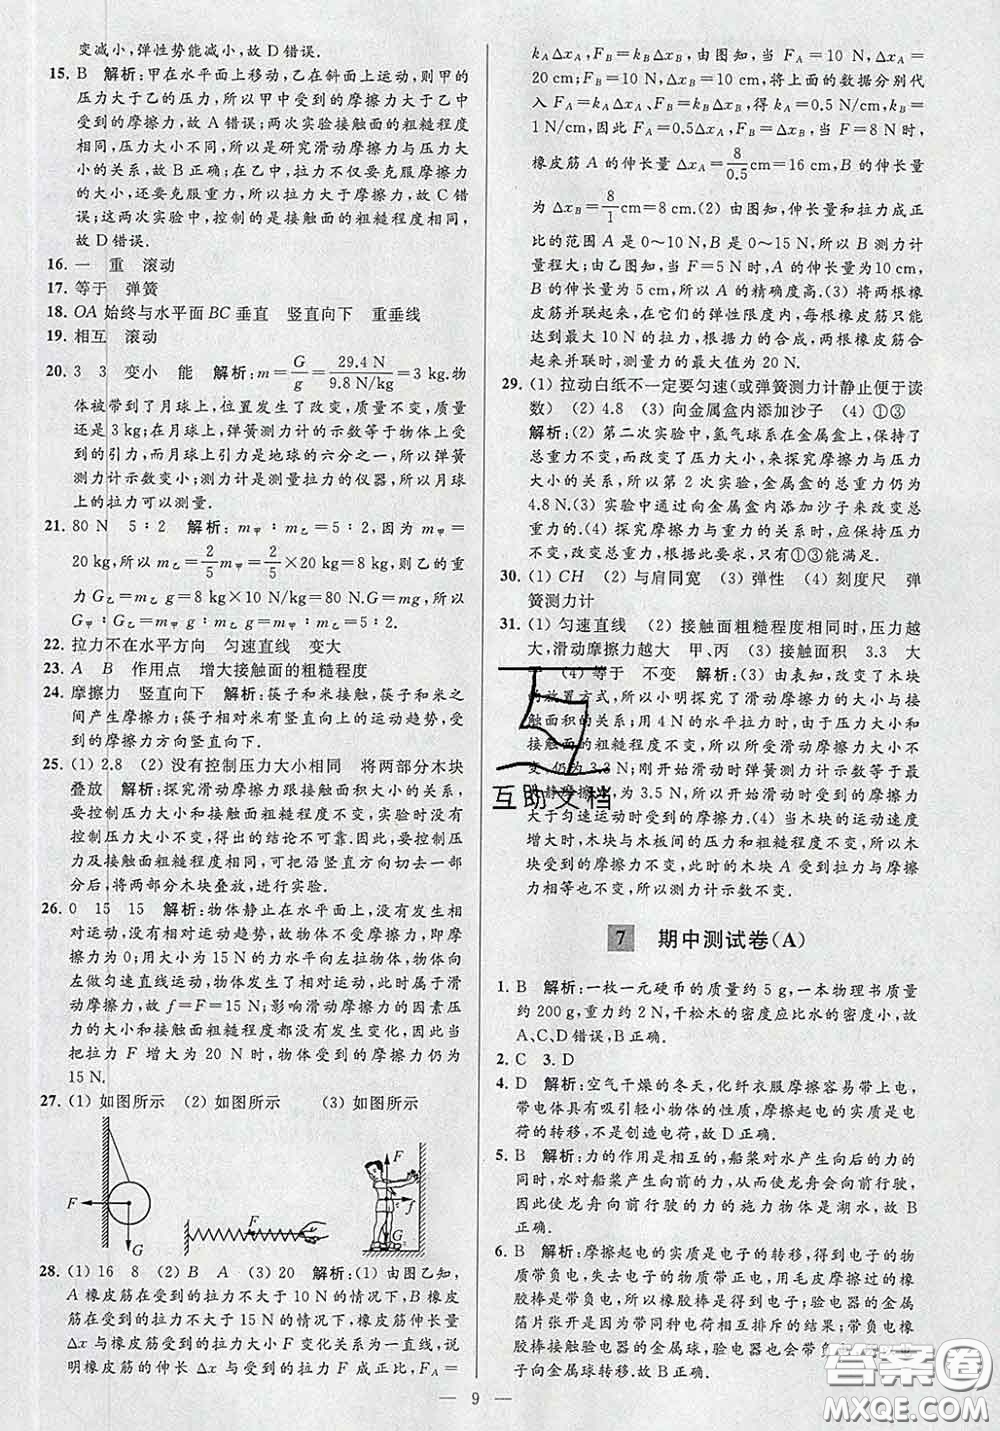 变减小,弹性势能减小,故 D 错误.
15. B 解析:甲在水平面上移动,乙在斜面上运动,则甲的
压力大于乙的压力,所以甲中受到的摩擦力大于乙中
受到的摩擦力,故 A 错误;两次实验接触面的粗糙程度
相同,压力大小不同,所以是研究滑动摩擦力与压力大
小的关系,故 B 正确;在乙中,拉力不仅要克服摩擦力
的大小,还要克服重力,所以拉力大于摩擦力,故 C 错
误;这两次实验中,控制的是接触面的粗糙程度相同,
故 D 错误.
16. 一 重 滚动
17. 等于 弹簧
18. OA 始终与水平面 BC 垂直 竖直向下 重垂线
19. 相互 滚动
20. 3 3 变小 能 解析:m=G/g=29.4 N/9.8 N/kg=3 kg.物
体被带到了月球上,位置发生了改变,质量不变,质量
还是 3 kg;在月球上,弹簧测力计的示数等于物体上受
到的引力,而月球上引力是地球的六分之一,所以弹簧
测力计示数变小;测力计是测量力的仪器,所以月球上
的拉力可以测量.
21. 80 N 5∶2 解析:m甲∶m乙=5∶2,因为 m甲=
20 kg,所以 m乙=2/5 m甲=2/5×20 kg=8 kg,则乙的重
力 G乙=m乙 g=8 kg×10 N/kg=80 N.G=mg,所以
G甲∶G乙=m甲 g∶m乙 g=m甲∶m乙=5∶2.
22. 拉力不在水平方向 匀速直线 变大
23. A B 作用点 增大接触面的粗糙程度
24. 摩擦力 竖直向下 解析:筷子和米接触,筷子和米之
间产生摩擦力;筷子相对米有竖直向上的运动趋势,受
到的摩擦力方向竖直向下.
25. (1) 2.8 (2) 没有控制压力大小相同 将两部分木块
叠放 解析:探究滑动摩擦力跟接触面积大小的关系,
要控制压力大小和接触面粗糙程度不变,实验中没有
控制压力大小不变,得出的结论不可靠.因此,要控制压
力及接触面粗糙程度相同,可把沿竖直方向切去一部
分后,将两部分木块叠放,进行实验.
26. 0 15 15 解析:物体静止在水平面上,没有发生相
对运动,没有相对运动趋势,故不受摩擦力,即摩擦力
为 0;用大小为 15 N 的水平力向左拉物体,物体向左
做匀速直线运动,物体发生了相对运动,故存在滑
动摩擦力,故 f=F=15 N;影响滑动摩擦力的因素压
力的大小和接触面粗糙程度都没有发生变化,因此当
把拉力 F 增大为 20 N 时,物体受到的摩擦力仍为
15 N.
27. (1) 如图所示 (2) 如图所示 (3) 如图所示
F G F f G
28. (1) 16 8 (2) B A (3) 20 解析:(1) 由图乙知,
A 橡皮筋在受到的拉力不大于 10 N 的情况下,B 橡皮
筋在受到的拉力不大于 15 N 的情况下,橡皮筋的伸长
量 Δx 与橡皮筋受到的拉力大小 F 变化关系为一直线,说
明橡皮筋的伸长 Δx 与受到的拉力 F 成正比,F_A=
k_AΔx_A,F_B=k_BΔx_B,由图知,当 F_A=10 N,Δx_A=
20 cm;F_B=10 N,Δx_B=10 cm,将上面的数据分别代
入 F_A=k_AΔx_A,F_B=k_BΔx_B,得 k_A=0.5 N/cm,k_B=
1 N/cm,因此 F_A=0.5Δx_A,F_B=Δx_B,当 F=8 N 时,
橡皮筋 A 的伸长量 Δx_A=8/0.5 cm=16 cm,B 的伸长量
为 Δx_B=8/1 cm=8 cm.(2) 由图知,伸长量和拉力成正
比的范围 A 是 0~10 N,B 是 0~15 N,所以 B 测力计
量程大;由乙图知,当 F=5 N 时,A 的伸长量为 10 cm,
B 的伸长量为 5 cm,所以 A 的精确度高.(3) 将两根橡
皮筋并联起来,在它们的弹性限度内,每根橡皮筋只能
达到最大 10 N 的拉力,根据力的合成,两根橡皮筋合
起来并联时,测量力的最大值为 20 N.
29. (1) 拉动白纸不一定要匀速(或弹簧测力计静止便于读
数) (2) 4.8 (3) 向金属盒内添加沙子 (4) ①③
解析:(2) 第二次实验中,氢气球系在金属盒上,保持了
总重力不变,而改变了压力大小,来探究摩擦力与压力
大小的关系,所以第 2 次实验,金属盒的总重力仍为
4.8 N.(3) 实验中通过向金属盒加沙子来改变总
重力的.(4) 探究摩擦力与重力的关系时,应保持压力
不变,改变总重力,根据此要求,只有①③能满足.
30. (1) CH (2) 与肩同宽 (3) 弹性 (4) 刻度尺 弹
簧测力计
31. (1) 匀速直线 (2) 接触面粗糙程度相同时,压力越
大,滑动摩擦力越大 甲、丙 (3) 接触面积 3.3 大
于 (4) 等于 不变 解析:(3) 由表知,改变了木块
的放置方式,所以小明探究了滑动摩擦力的大小与接
触面积的关系;用 4 N 的水平拉力时,由于压力大小和
接触面的粗糙程度不变,所以所受滑动摩擦力大小不
变,仍为 3.3 N;刚开始滑动时弹簧测力计的示数为最
大静摩擦力,为 3.5 N,所以木块刚开始滑动时的摩擦力
大于匀速运动时受到的摩擦力.(4) 当木块的运动速度
增大时,木块与木板间的压力和粗糙程度不变,所以木
块受到的摩擦力不变,此时的木块 A 受到拉力与摩擦
力相等也不变,所以测力计示数不变.
7 期中测试卷(A)
1. B 解析:一枚一元硬币的质量约 5 g,一本物理书质量
约 200 g,重力约 2 N,干松木的密度应比水的密度小,故
A、C、D 错误,B 正确.
2. C 3. D
4. D 解析:空气干燥的冬天,化纤衣服摩擦容易带上电,
带电体具有吸引轻小物体的性质,摩擦起电的实质是电
荷的转移,不是创造电荷,故 D 正确.
5. B 解析:力的作用是相互的,船桨对水产生向后的力的
同时,水对船桨产生向前的力,从而使龙舟向前行驶,
因此使龙舟向前行驶的力的施力物体是湖水,故 B
正确.
6. B 解析:摩擦起电的实质是电子的转移,得到电子的物
质带负电,失去电子的物质带正电,用毛皮摩擦过的橡
胶棒是带负电,所以橡胶棒得到了电子;验电器的金属
箔片张开是因为带同种电荷相互排斥的结果;带负电橡
胶棒接触验电器的金属球,验电器也带负电,
子向金属球转移.故 B 正确.
9
互助文档
答案圈
MXQE.COM